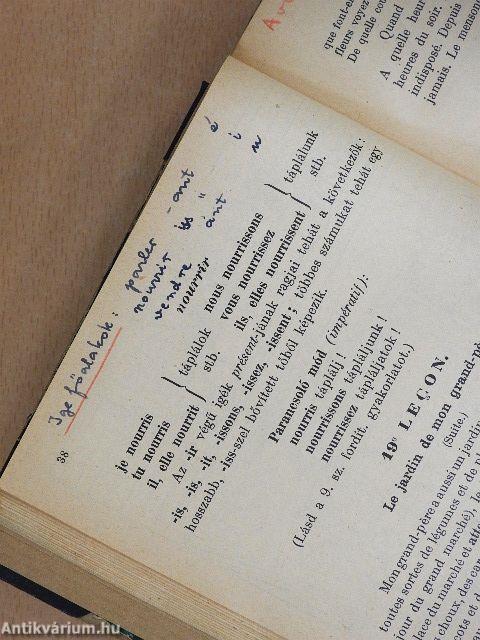 38
Ige főalakok: parler -ant é
nourrir iss " i
vendre ánt u
nourrir
je nourris
tu nourris
il, elle nourrit
táplálok
stb.
nous nourrissons
vous nourrissez
ils, elles nourrissent
táplálunk
stb.
Az -ir végű igék présent-jának ragjai tehát a következők:
-is, -is, -it, -issons, -issez, -issent; többes számukat tehát egy
hosszabb, -iss-szel bővített tőből képezik.
Parancsoló mód (impératif):
nourris táplálj!
nourrissons tápláljunk!
nourrissez tápláljatok!
(Lásd a 9. sz. fordit. gyakorlatot.)
19e LEÇON.
Le jardin de mon grand-pè
(Suite.)
Mon grand-père a aussi un jardin
toutes sortes de légumes et de pl
our du grand marché), le
lace du marché et atte
es choux, des car
ts et d
que font-e
fleurs voyez
De quelle cou
Quand
A quelle heur
heures du soir.
indisposé. Depuis
jamais. Le menson
Antikvárium.hu